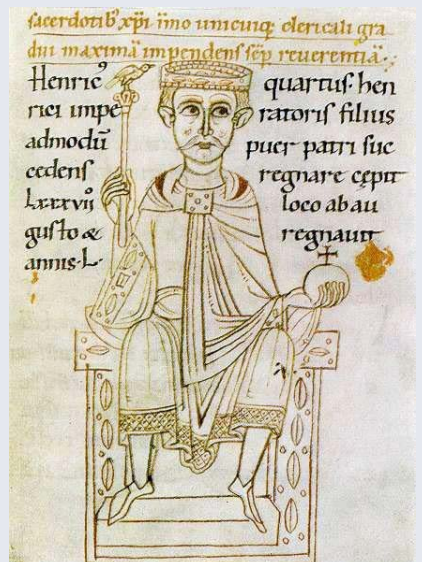 sacerdotib' xp̄i immo unicuiq; clericali gra
dui maximā impendens sēp reuerentiā.
Henric' quartus. hen
rici impe ratoris filius
admodū puer patri suc
cedens regnare cępit
lxxxvii loco ab au
gusto & regnauit
annis. L.